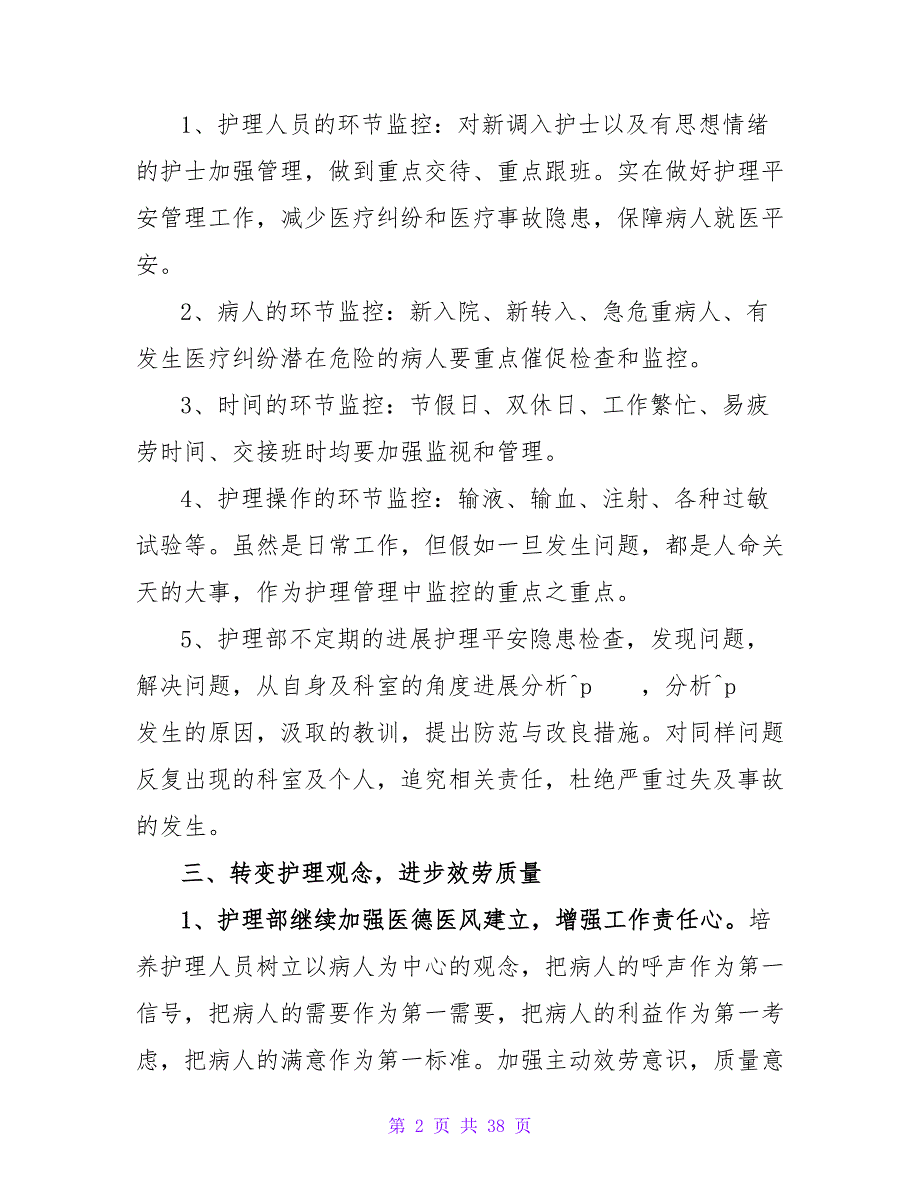 1、护理人员的环节监控：对新调入护士以及有思想情绪
的护士加强管理，做到重点交待、重点跟班。实在做好护理平
安管理工作，减少医疗纠纷和医疗事故隐患，保障病人就医平
安。
2、病人的环节监控：新入院、新转入、急危重病人、有
发生医疗纠纷潜在危险的病人要重点催促检查和监控。
3、时间的环节监控：节假日、双休日、工作繁忙、易疲
劳时间、交接班时均要加强监视和管理。
4、护理操作的环节监控：输液、输血、注射、各种过敏
试验等。虽然是日常工作，但假如一旦发生问题，都是人命关
天的大事，作为护理管理中监控的重点之重点。
5、护理部不定期的进展护理平安隐患检查，发现问题，
解决问题，从自身及科室的角度进展分析^p ，分析^p
发生的原因，汲取的教训，提出防范与改良措施。对同样问题
反复出现的科室及个人，追究相关责任，杜绝严重过失及事故
的发生。
三、转变护理观念，进步效劳质量
1、护理部继续加强医德医风建立，增强工作责任心。培
养护理人员树立以病人为中心的观念，把病人的呼声作为第一
信号，把病人的需要作为第一需要，把病人的利益作为第一考
虑，把病人的满意作为第一标准。加强主动效劳意识，质量意
第 2 页 共 38 页